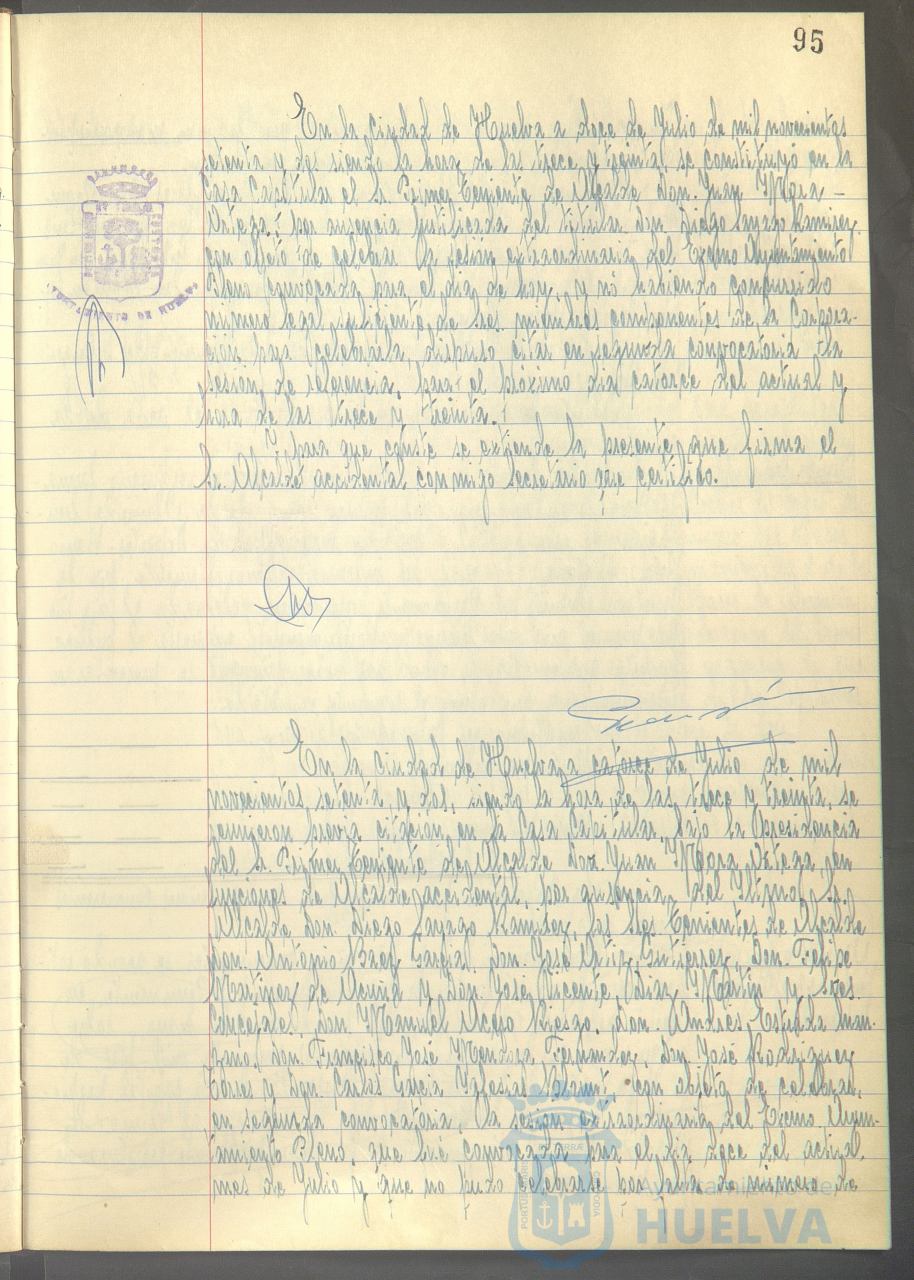 95
En la Ciudad de Huelva a doce de Julio de mil novecientos
setenta y dos siendo la hora de las trece y treinta, se constituyó en la
Casa Capitular el Sr. Primer Teniente de Alcalde don Juan Mora
Ortega, por ausencia justificada del titular don Diego Sayago Ramirez,
con objeto de celebrar la sesión extraordinaria del Excmo Ayuntamiento
Pleno convocada para el dia de hoy, y no habiendo concurrido
número legal suficiente de los miembros componentes de la Corpora-
ción para celebrarla, dispuso citar en segunda convocatoria la
sesión de referencia, para el próximo dia catorce del actual y
hora de las trece y treinta.
Y para que conste se extiende la presente que firma el
Sr. Alcalde accidental conmigo Secretario que certifico.
En la Ciudad de Huelva a catorce de Julio de mil
novecientos setenta y dos, siendo la hora de las trece y treinta, se
reunieron previa citación en la Casa Capitular, bajo la Presidencia
del Sr. Primer Teniente de Alcalde don Juan Mora Ortega, en
funciones de Alcalde accidental, por ausencia del Iltmo. Sr.
Alcalde don Diego Sayago Ramirez, los Sres Tenientes de Alcalde
don Antonio Baez Garcia, don José Ortiz Gutierrez, don Felipe
Martinez de Acuña y don José Vicente Diaz Martin y Sres.
Concejales don Manuel Riesgo, don Andrés Estrada Man-
zano, don Francisco José Mendoza Fernandez, don José Rodriguez
y don Carlos Garcia Iglesias, con objeto de celebrar,
en segunda convocatoria, la sesión extraordinaria del Excmo Ayun-
tamiento Pleno, que fué convocada para el dia doce del actual
mes de Julio y que no pudo celebrarse por falta de número de
Ayuntamiento de
HUELVA